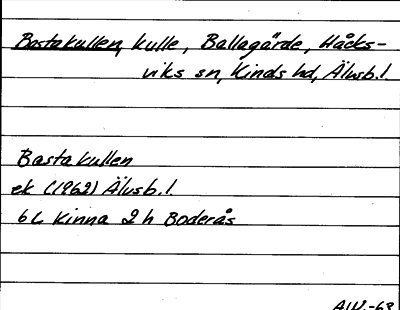 Bastakullen, kulle, Ballagärde, Håcks-
viks sn, Kinds hd, Älvsb. l.
Bastakullen
ek (1962) Älvsb. l.
6C Kinna 2h Boderås